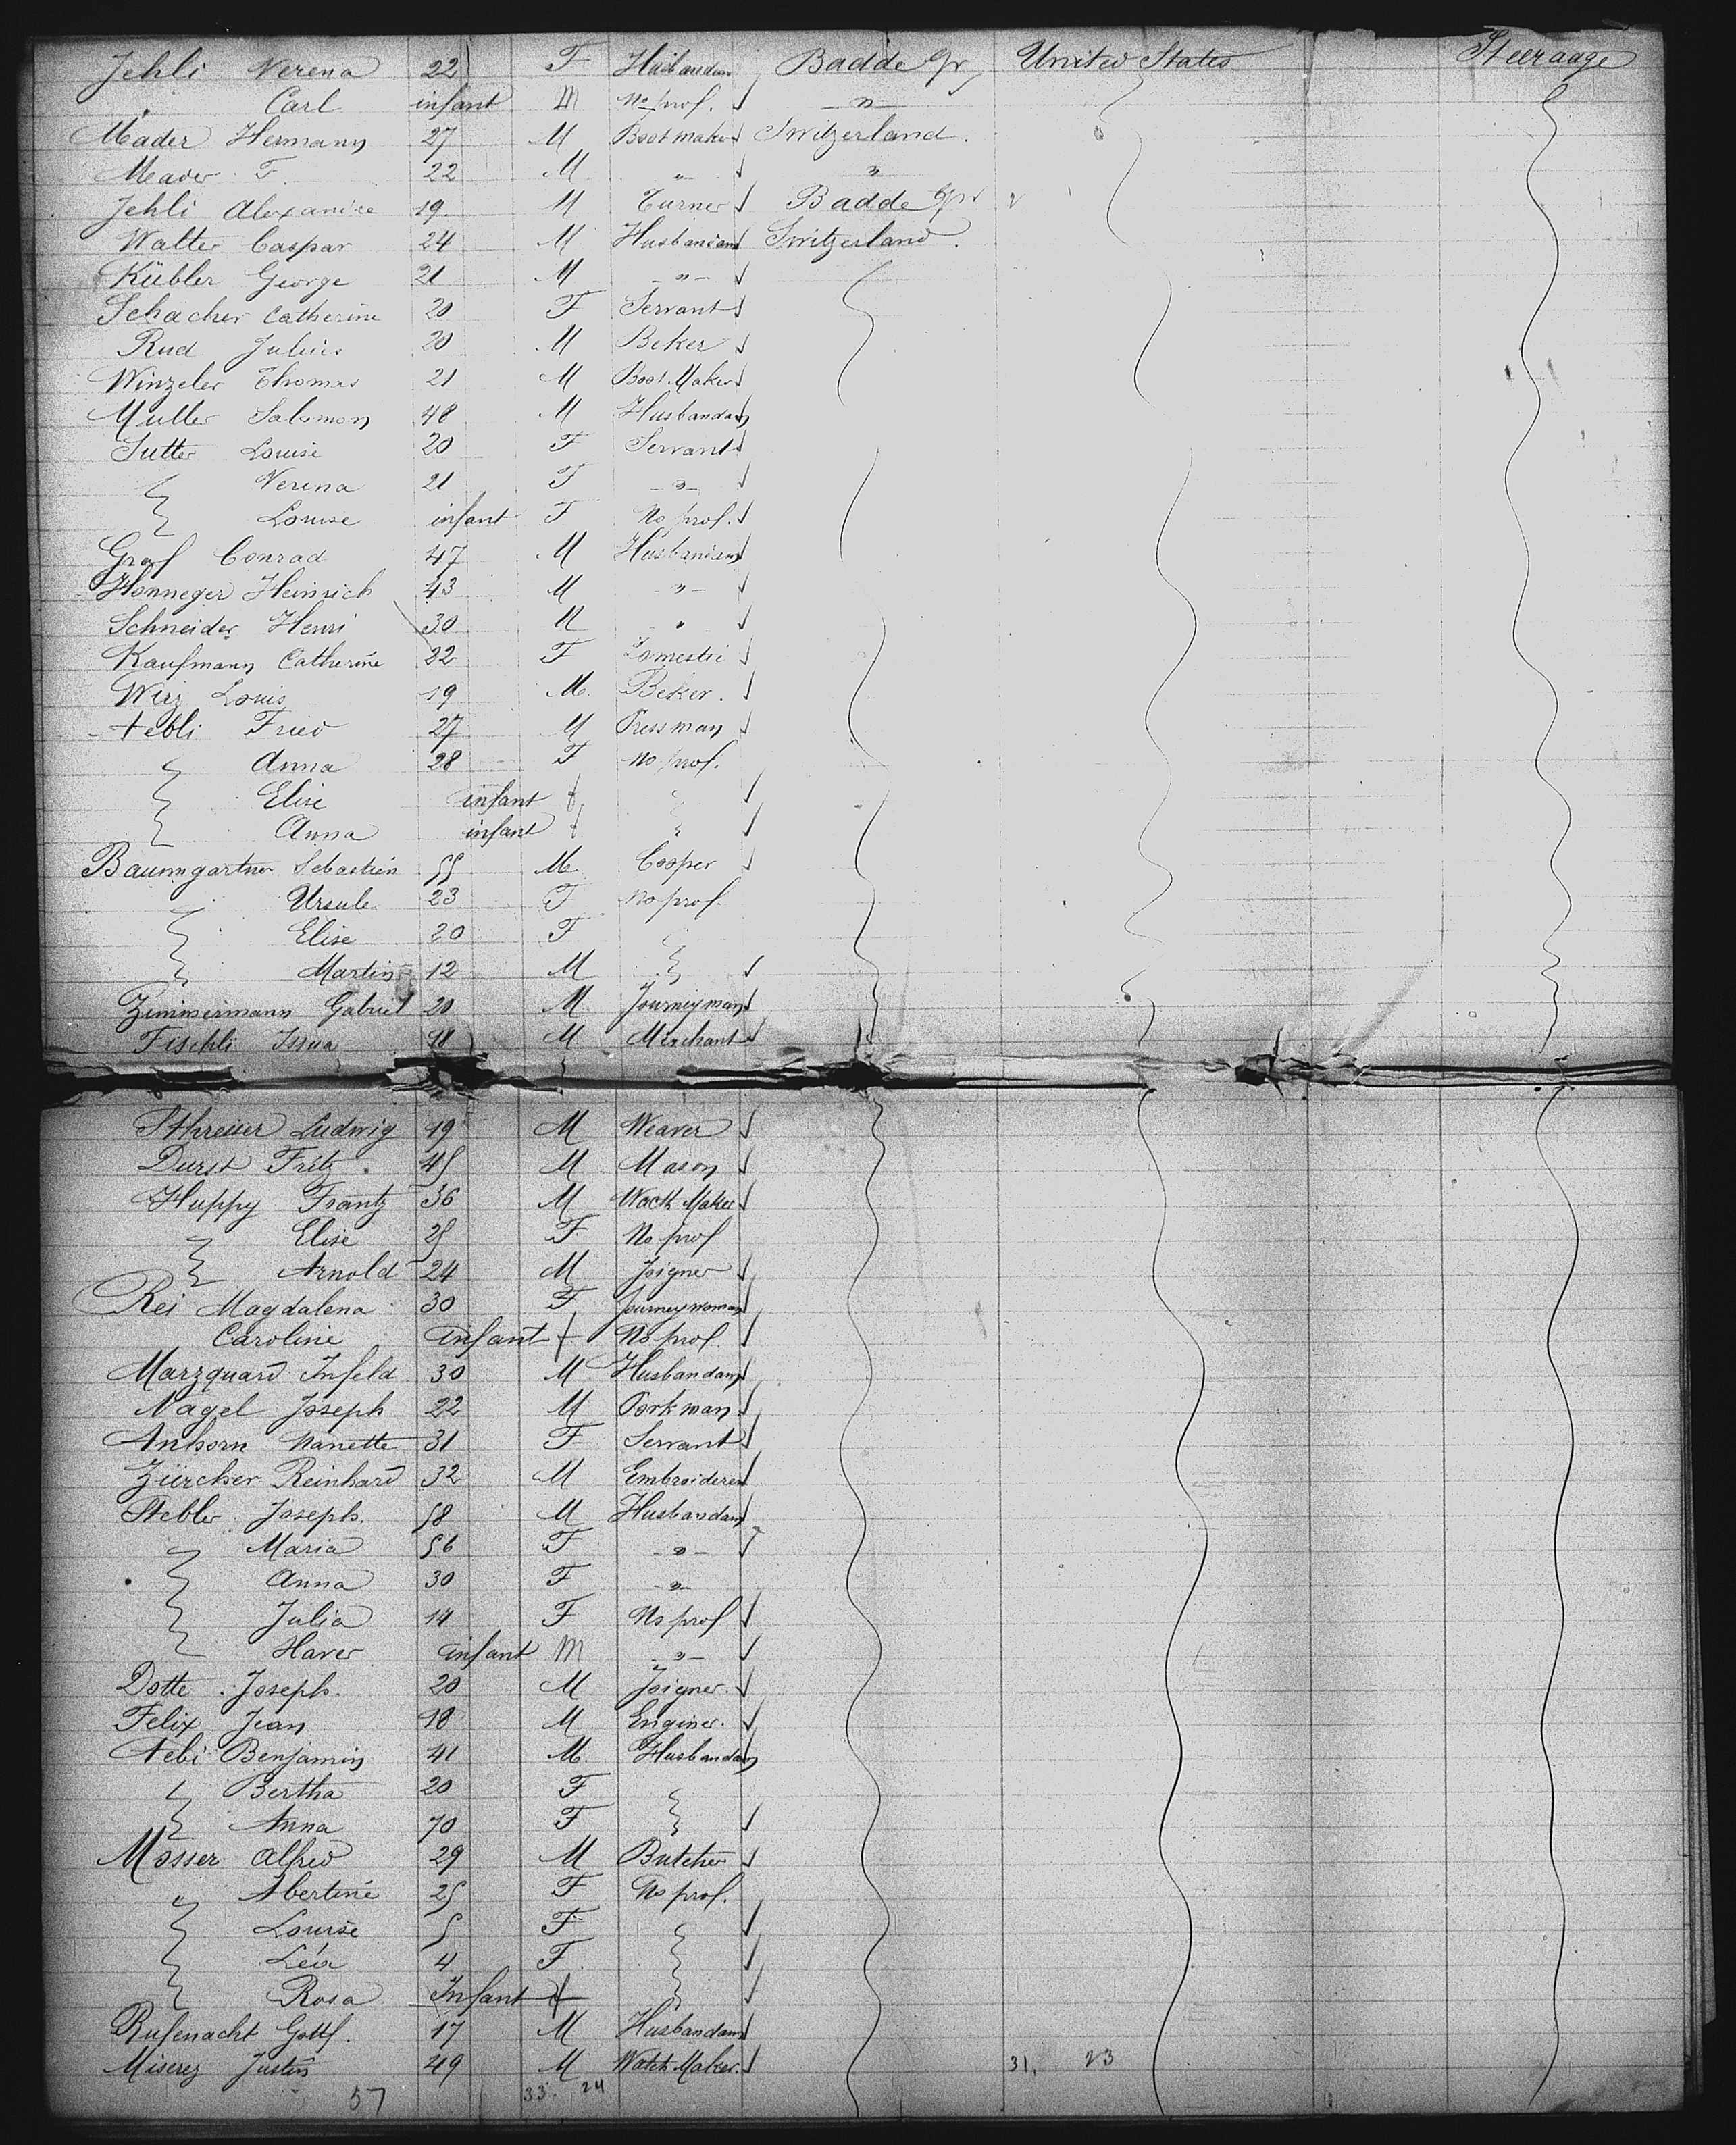 Jehli Verena 22 F Husbandm Badde Gr United States Steeraage
Carl infant M No prof. —"—
Meader Hermann 27 M Boot maker Switzerland.
Meader F. 22 M " "
Jehli Alexandre 19 M Turner Badde Gr
Walter Caspar 24 M Husbandam Switzerland.
Kübler George 21 M —"—
Schacher Catherine 20 F Servant
Rud Julius 20 M Beker
Winzeler Thomas 21 M Boot Maker
Muller Salomon 48 M Husbandam
Sutter Louise 20 F Servant
Verena 21 F —"—
Louise infant F No prof.
Graf Conrad 47 M Husbandam
Honneger Heinrich 43 M —"—
Schneider Henri 30 M "
Kaufmann Catherine 22 F Domestic
Wirz Louis 19 M. Beker.
Aebli Fried 27 M Pressman
Anna 28 F No prof.
Elise infant f
Anna infant f
Baumgartner Sebastien 55 M Cooper
Ursule 23 F No prof.
Elise 20 F
Martin 12 M
Zimmermann Gabriel 20 M Journeyman
Fischli M Merchant
Ludwig 19 M Weaver
Durst Fritz. 45 M Mason
Huppy Frantz 36 M Wacth Maker
Elise 25 F No prof
Arnold 24 M Joigner
Rei Magdalena 30 F Journeywoman
Caroline infant f No prof.
Marzquard Infeld 30 M Husbandam
Nagel Joseph 22 M Porkman
Anhorn Nanette 31 F Servant
Zürcher Reinhard 32 M Embroiderer
Stebler Joseph. 58 M Husbandam
Maria 56 F —"—
Anna 30 F —"—
Julia 14 F No prof
Haver infant M —"—
Dotte Joseph. 20 M Joigner.
Felix Jean 18 M Enginer.
Aebi Benjamin 41 M. Husbandam
Bertha 20 F
Anna 70 F
Mosser Alfred 29 M Butcher
" Abertine 25 F No prof.
Louise 5 F
Léa 4 F.
Rosa Infant f
Rufenacht Gottf. 17 M Husbandam
Miserez Justin 49 M Watch Maker. 31. 23
57 33. 24